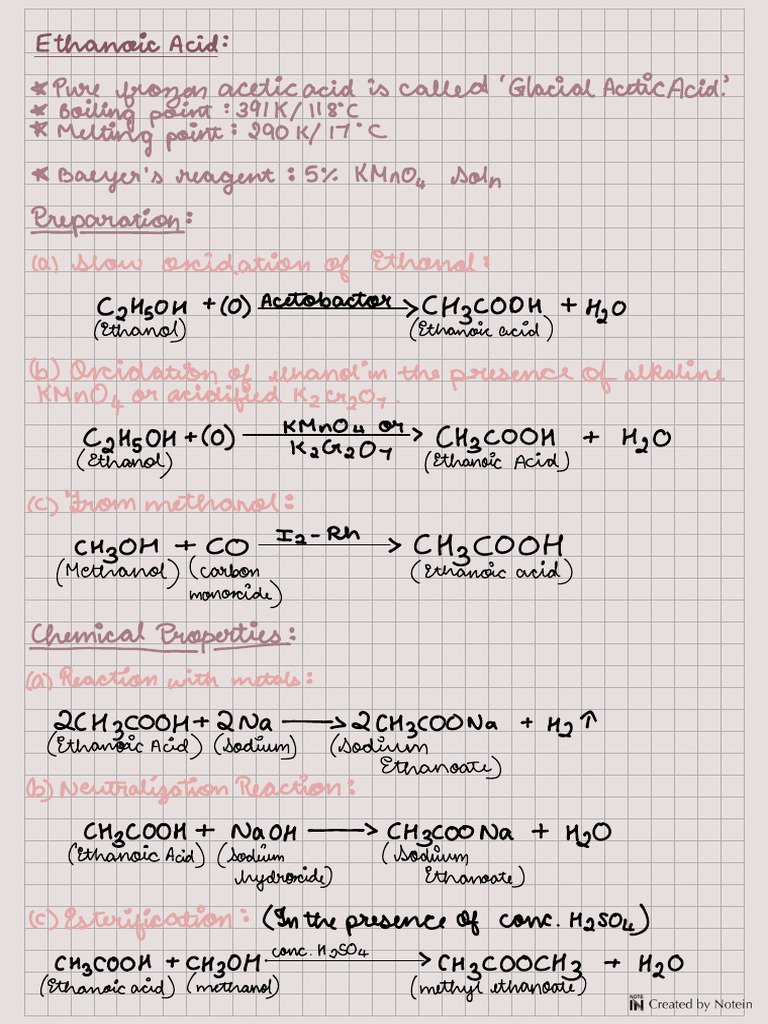 Ethanoic Acid:
* Pure frozen acetic acid is called 'Glacial Acetic Acid.'
* Boiling point : 391K/118°C
* Melting point : 290K/17°C
* Baeyer's reagent : 5% KMnO₄ soln
Preparation:
(a) Slow oxidation of Ethanol:
C₂H₅OH + (O) Acetobactor → CH₃COOH + H₂O
(Ethanol) (Ethanoic acid)
(b) Oxidation of ethanol in the presence of alkaline
KMnO₄ or acidified K₂Cr₂O₇.
KMnO₄ or
C₂H₅OH + (O) → CH₃COOH + H₂O
K₂Cr₂O₇
(Ethanol) (Ethanoic Acid)
(c) From methanol:
CH₃OH + CO I₂-Rh → CH₃COOH
(Methanol) (carbon (Ethanoic acid)
monoxide)
Chemical Properties:
(a) Reaction with metals:
2CH₃COOH + 2Na → 2CH₃COONa + H₂↑
(Ethanoic Acid) (Sodium) (Sodium
Ethanoate)
(b) Neutralization Reaction:
CH₃COOH + NaOH → CH₃COONa + H₂O
(Ethanoic Acid) (Sodium (Sodium
hydroxide) Ethanoate)
(c) Esterification: (In the presence of conc. H₂SO₄)
CH₃COOH + CH₃OH conc. H₂SO₄ → CH₃COOCH₃ + H₂O
(Ethanoic acid) (methanol) (methyl ethanoate)
NOTE IN Created by Notein